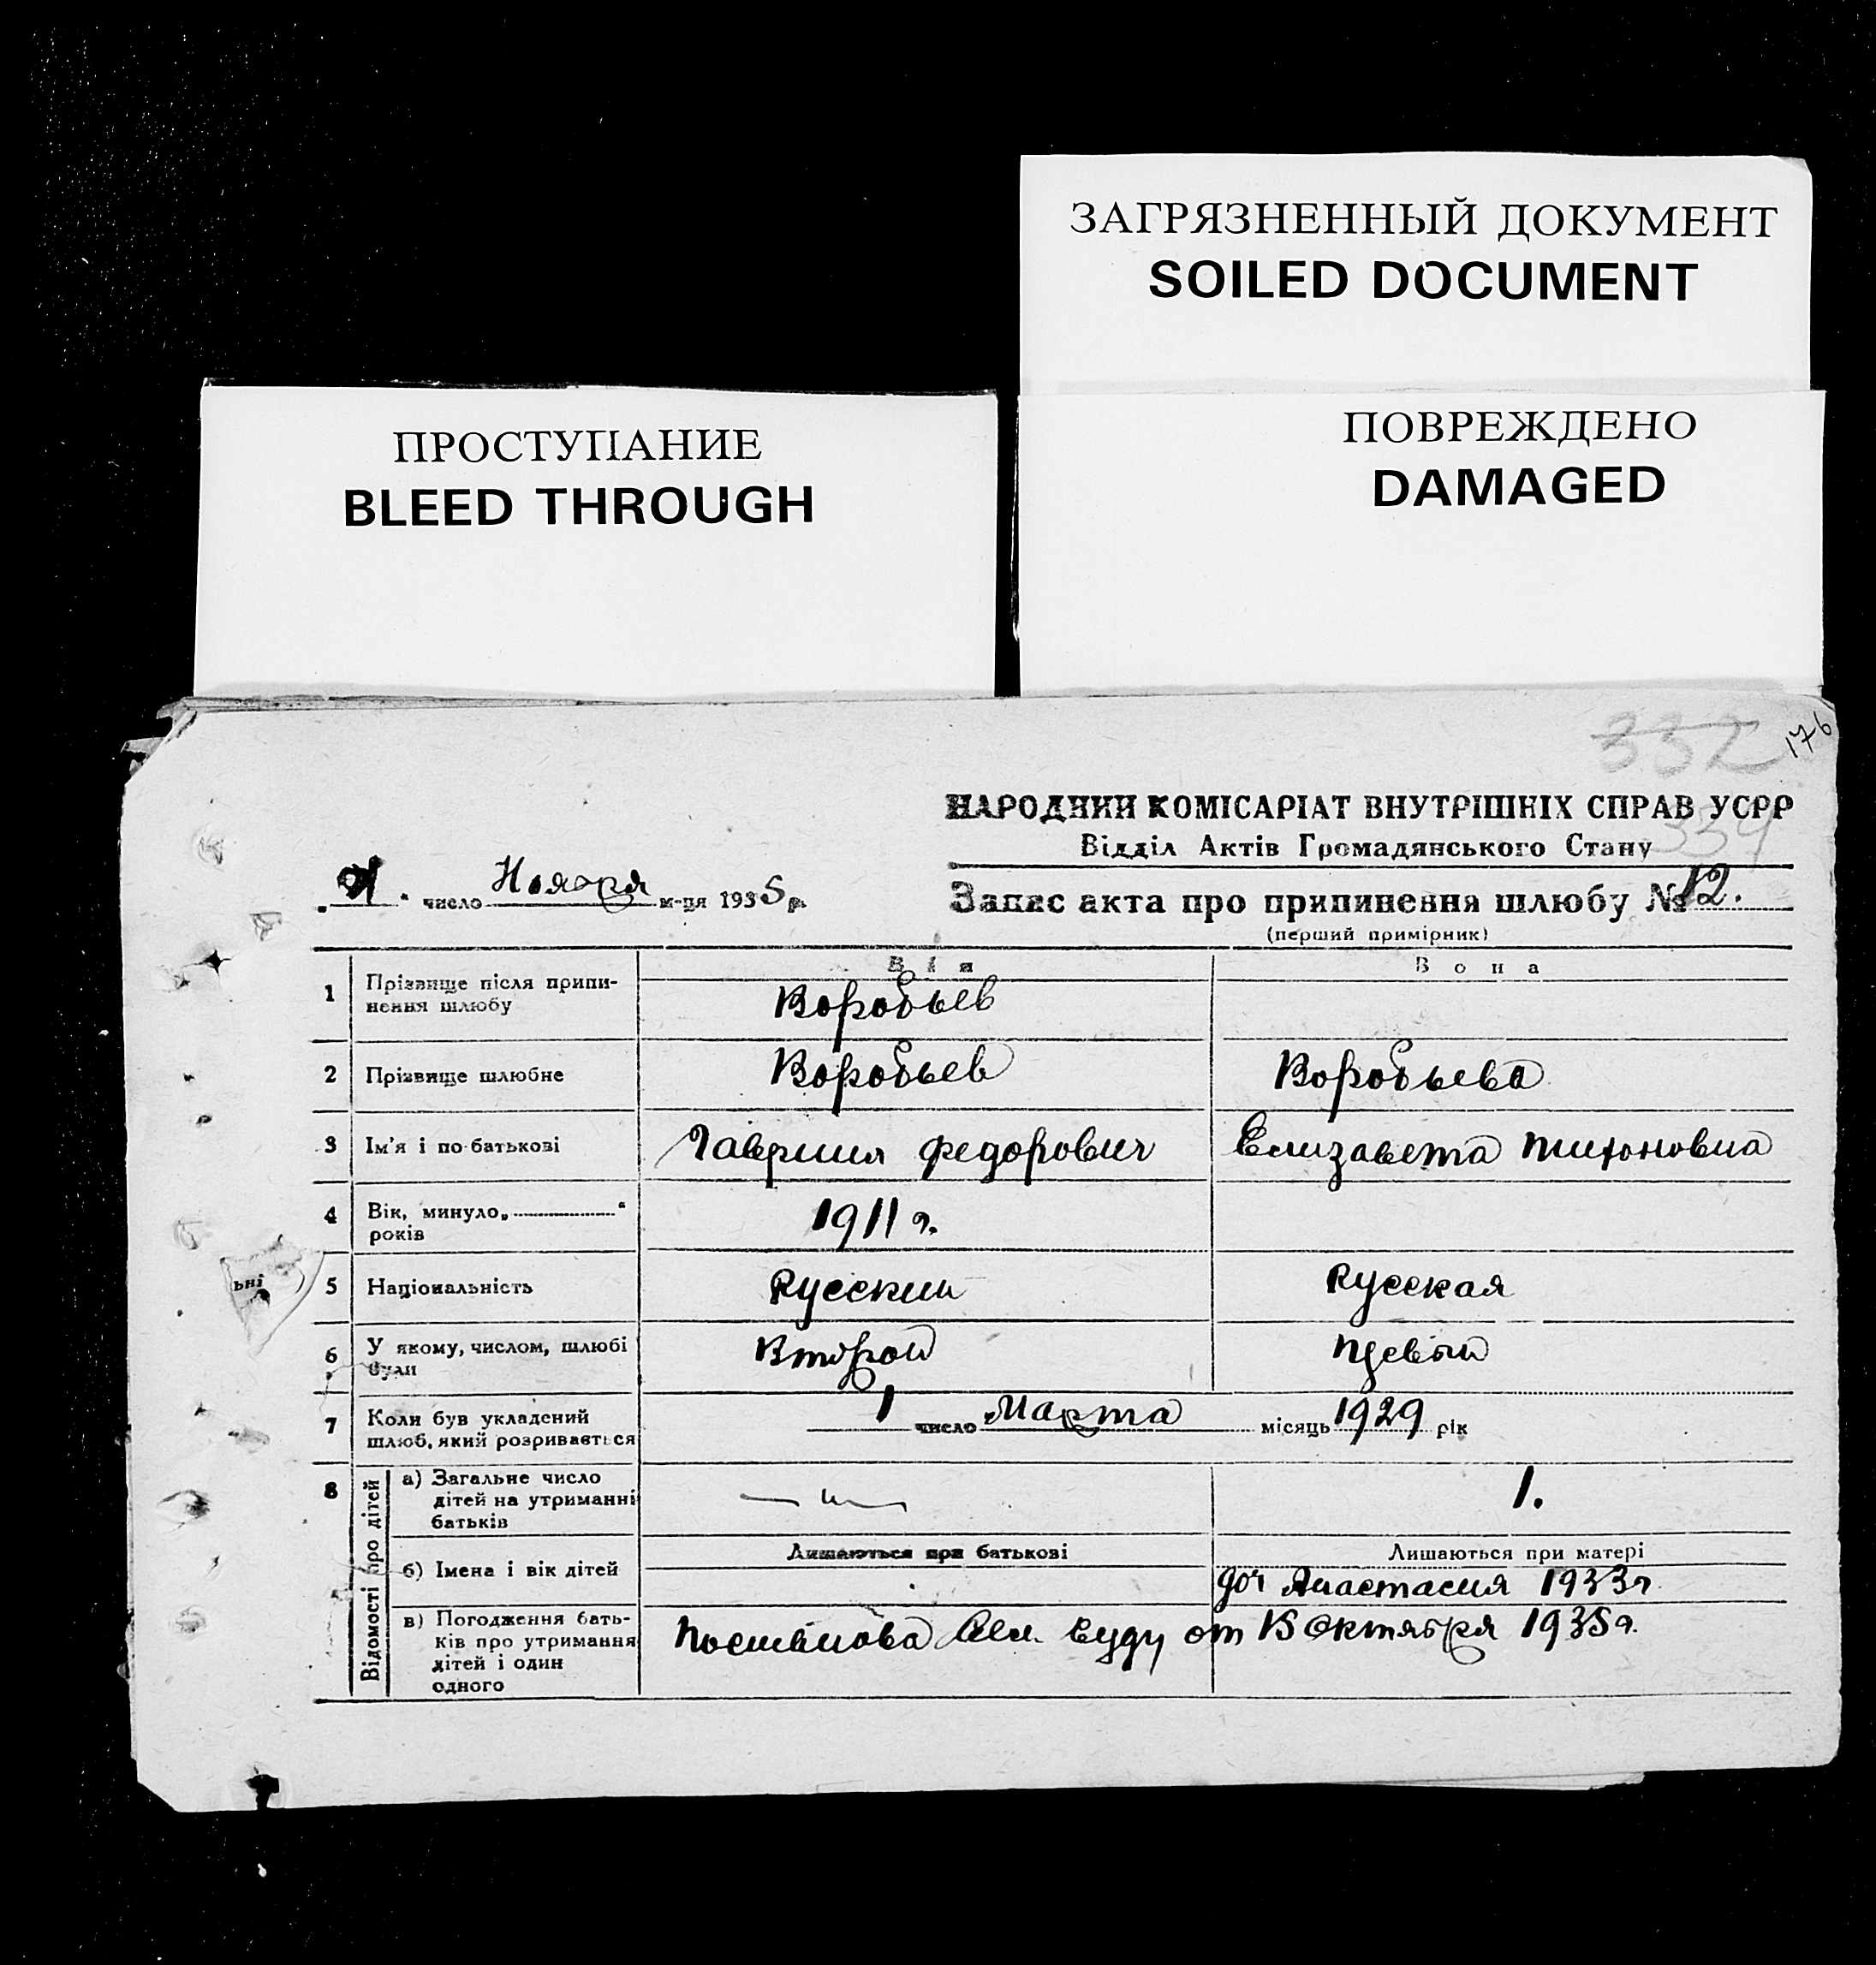 ЗАГРЯЗНЕННЫЙ ДОКУМЕНТ
SOILED DOCUMENT
ПРОСТУПАНИЕ
BLEED THROUGH
ПОВРЕЖДЕНО
DAMAGED
332
176
НАРОДНИЙ КОМІСАРІАТ ВНУТРІШНІХ СПРАВ УСРР
334
Відділ Актів Громадянського Стану
число Ноября м-ця 1935 р.
Запис акта про припинення шлюбу № 12.
(перший примірник)
Він Вона
1 Прізвище після припи-
нення шлюбу
Воробьев
2 Прізвище шлюбне Воробьев Воробьева
3 Ім'я і по-батькові Гавриил Федорович Елизавета Тихоновна
4 Вік, минуло „ “
років
1911 г.
ьні
5 Національність Русский Русская
6 У якому, числом, шлюбі
були
Второй Первый
7 Коли був укладений
шлюб, який розривається
1 число Марта місяць 1929 рік
8 Відомості про дітей
а) Загальне число
дітей на утриманні
батьків
1.
Лишаються при батькові Лишаються при матері
б) Імена і вік дітей
доч Анастасия 1933 г.
в) Погодження бать-
ків про утримання
дітей і один
одного
суду от 13 Октября 1935 г.